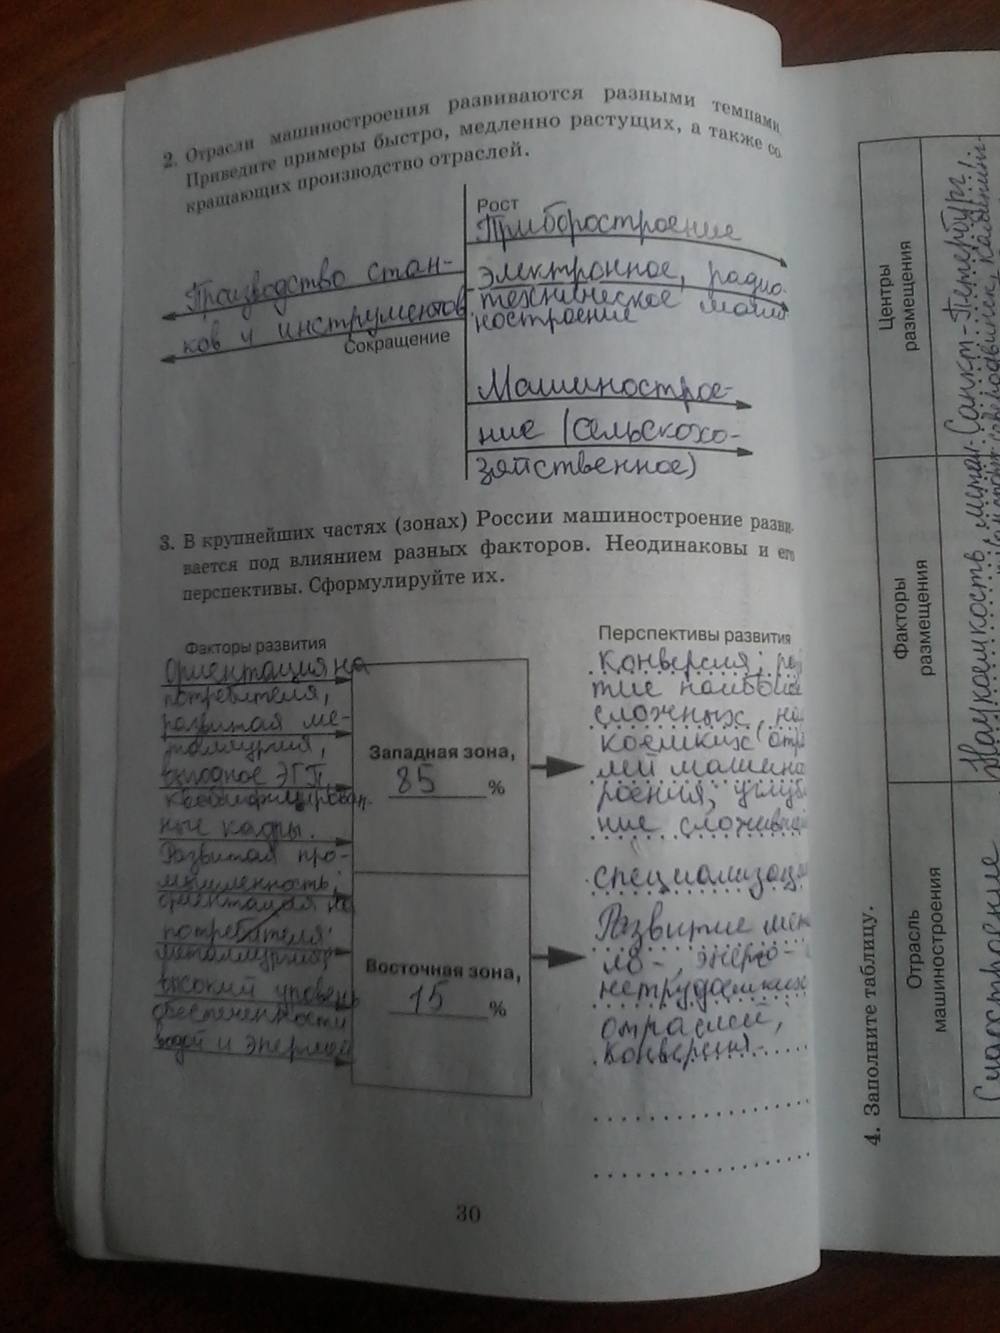 2. Отрасли машиностроения развиваются разными темпами.
Приведите примеры быстро, медленно растущих, а также со
кращающих производство отраслей.
Рост
Приборостроение
Производство стан-
ков и инструментов
Сокращение
электронное, радио
техническое маши
ностроение
Машинострое-
ние (сельскохо-
зяйственное)
3. В крупнейших частях (зонах) России машиностроение разви-
вается под влиянием разных факторов. Неодинаковы и его
перспективы. Сформулируйте их.
Факторы развития
Ориентация на
потребителя,
развитая ме-
таллургия,
выгодное ЭГП
квалифицирован-
ные кадры.
Развитая про-
мышленность,
ориентация на
потребителя:
металлургия,
высокий уровень
обеспеченности
водой и энергией
Западная зона,
85 %
Восточная зона,
15 %
Перспективы развития
Конверсия; раз
тие наиболее
сложных, на
коемких отра
лей машино
роения; углуб
ние сложивш
специализац
Развитие мет
ло-, энерго-
нетрудоемких
отраслей,
конверсия.
30
4. Заполните таблицу.
Отрасль
машиностроения
Факторы
размещения
Центры
размещения
Судостроение
Наукоемкость, метал
Санкт-Петербург,
Северодвинск, Калинин-